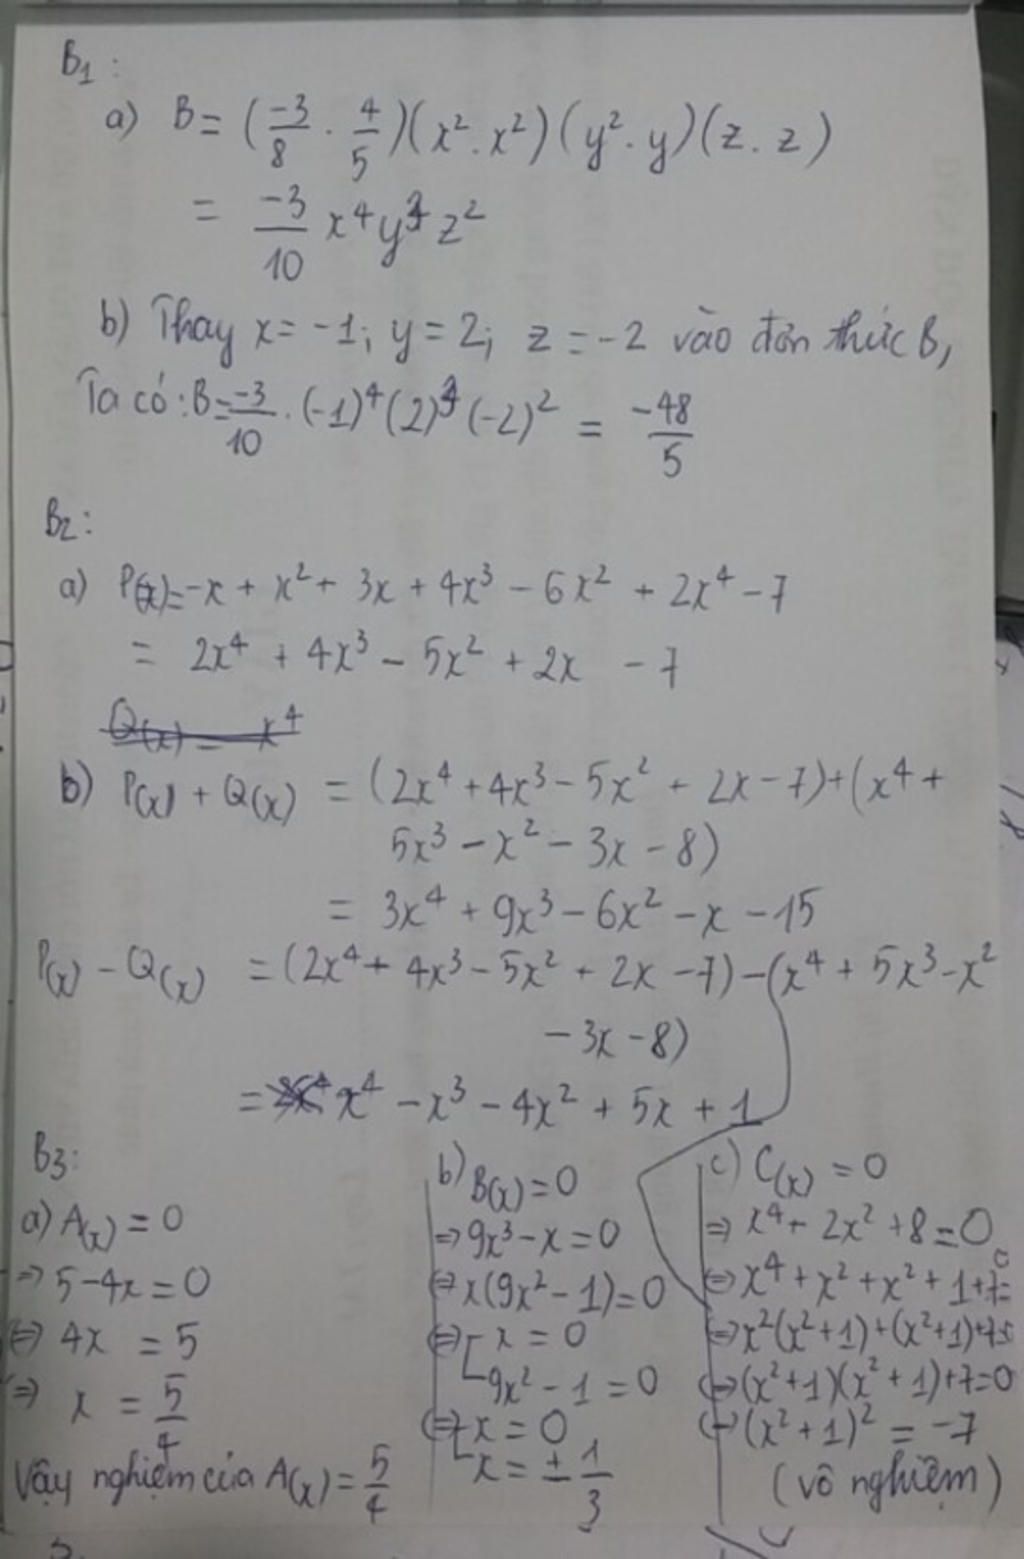 B1:
a) B = (-3/8 . 4/5)(x². x²)(y². y)(z. z)
= -3/10 x⁴y³z²
b) Thay x = -1; y = 2; z = -2 vào đơn thức B,
Ta có: B = -3/10 . (-1)⁴(2)³(-2)² = -48/5
B2:
a) P(x) = -x + x² + 3x + 4x³ - 6x² + 2x⁴ - 7
= 2x⁴ + 4x³ - 5x² + 2x - 7
Q(x) = x⁴
b) P(x) + Q(x) = (2x⁴ + 4x³ - 5x² + 2x - 7) + (x⁴ +
5x³ - x² - 3x - 8)
= 3x⁴ + 9x³ - 6x² - x - 15
P(x) - Q(x) = (2x⁴ + 4x³ - 5x² + 2x - 7) - (x⁴ + 5x³ - x²
- 3x - 8)
= x⁴ - x³ - 4x² + 5x + 1
B3:
a) A(x) = 0
=> 5 - 4x = 0
<=> 4x = 5
=> x = 5/4
Vậy nghiệm của A(x) = 5/4
b) B(x) = 0
=> 9x³ - x = 0
<=> x(9x² - 1) = 0
<=> [ x = 0
9x² - 1 = 0
<=> [ x = 0
x = ± 1/3
c) C(x) = 0
=> x⁴ + 2x² + 8 = 0
<=> x⁴ + x² + x² + 1 + 7 = 0
<=> x²(x² + 1) + (x² + 1) + 7 = 0
<=> (x² + 1)(x² + 1) + 7 = 0
<=> (x² + 1)² = -7
(vô nghiệm)